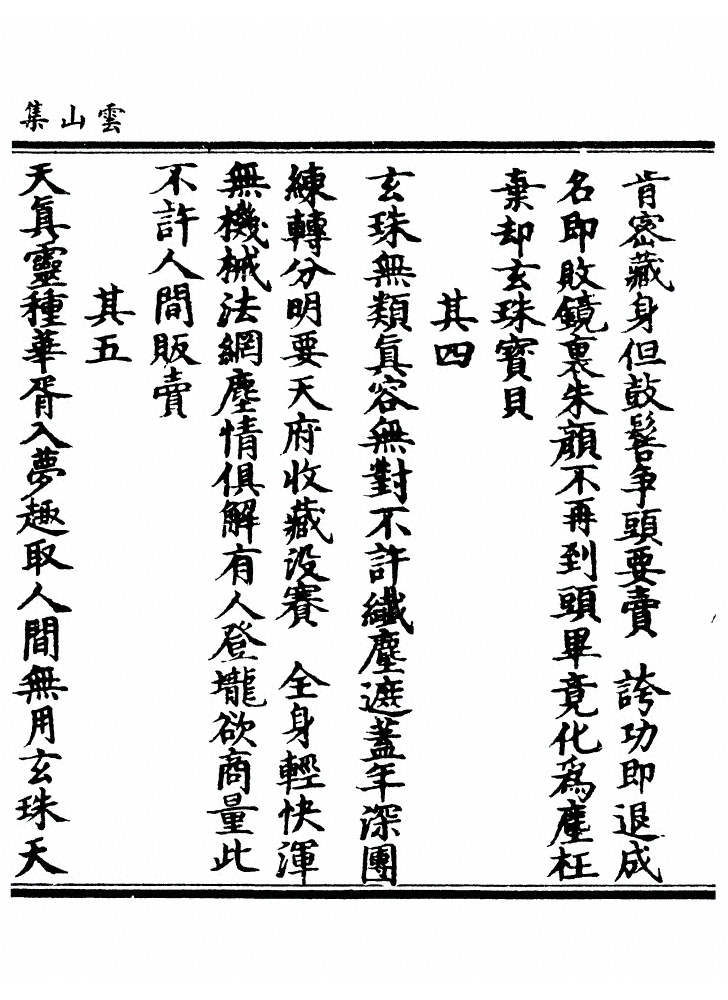 雲山集
肯密藏身但鼓髻争頭要賣　誇功即退成
名即敗鏡裏朱顔不再到頭畢竟化爲塵枉
棄却玄珠寶貝
其四
玄珠無類真容無對不許纖塵遮蓋年深團
練轉分明要天府收藏没賽　全身輕快渾
無機械法網塵情俱解有人登壠欲商量此
不許人間販賣
其五
天真靈種華胥入夢趣取人間無用玄珠天